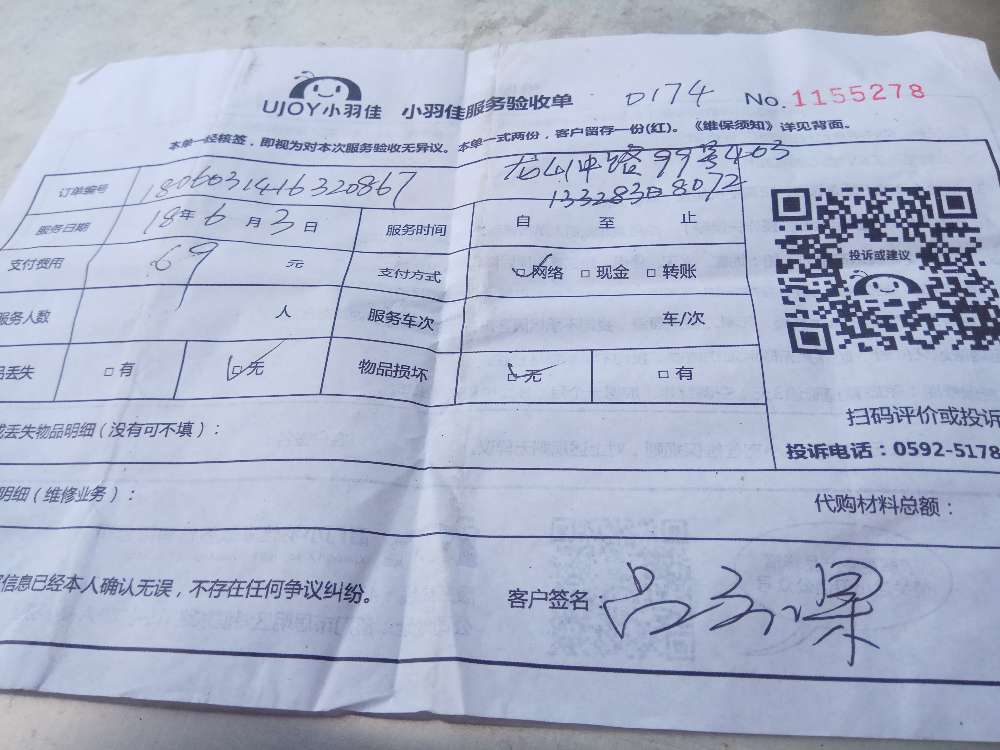 UJOY小羽佳 小羽佳服务验收单 0174 No.1155278
本单一经核签，即视为对本次服务验收无异议。本单一式两份，客户留存一份(红)。《维保须知》详见背面。
订单编号 1806031416320867 99号403
服务日期 18年6月3日 服务时间 自 至 止
支付费用 69 元 支付方式 网络 □现金 □转账
服务人数 人 服务车次 车/次
丢失 □有 无 物品损坏 □无 □有
投诉或建议
扫码评价或投诉
丢失物品明细(没有可不填)：
投诉电话：0592-5178
明细(维修业务)： 代购材料总额：
信息已经本人确认无误，不存在任何争议纠纷。 客户签名：